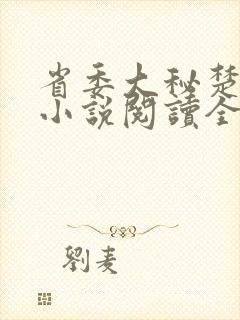 省委大秘楚
小說閱讀全
劉麦